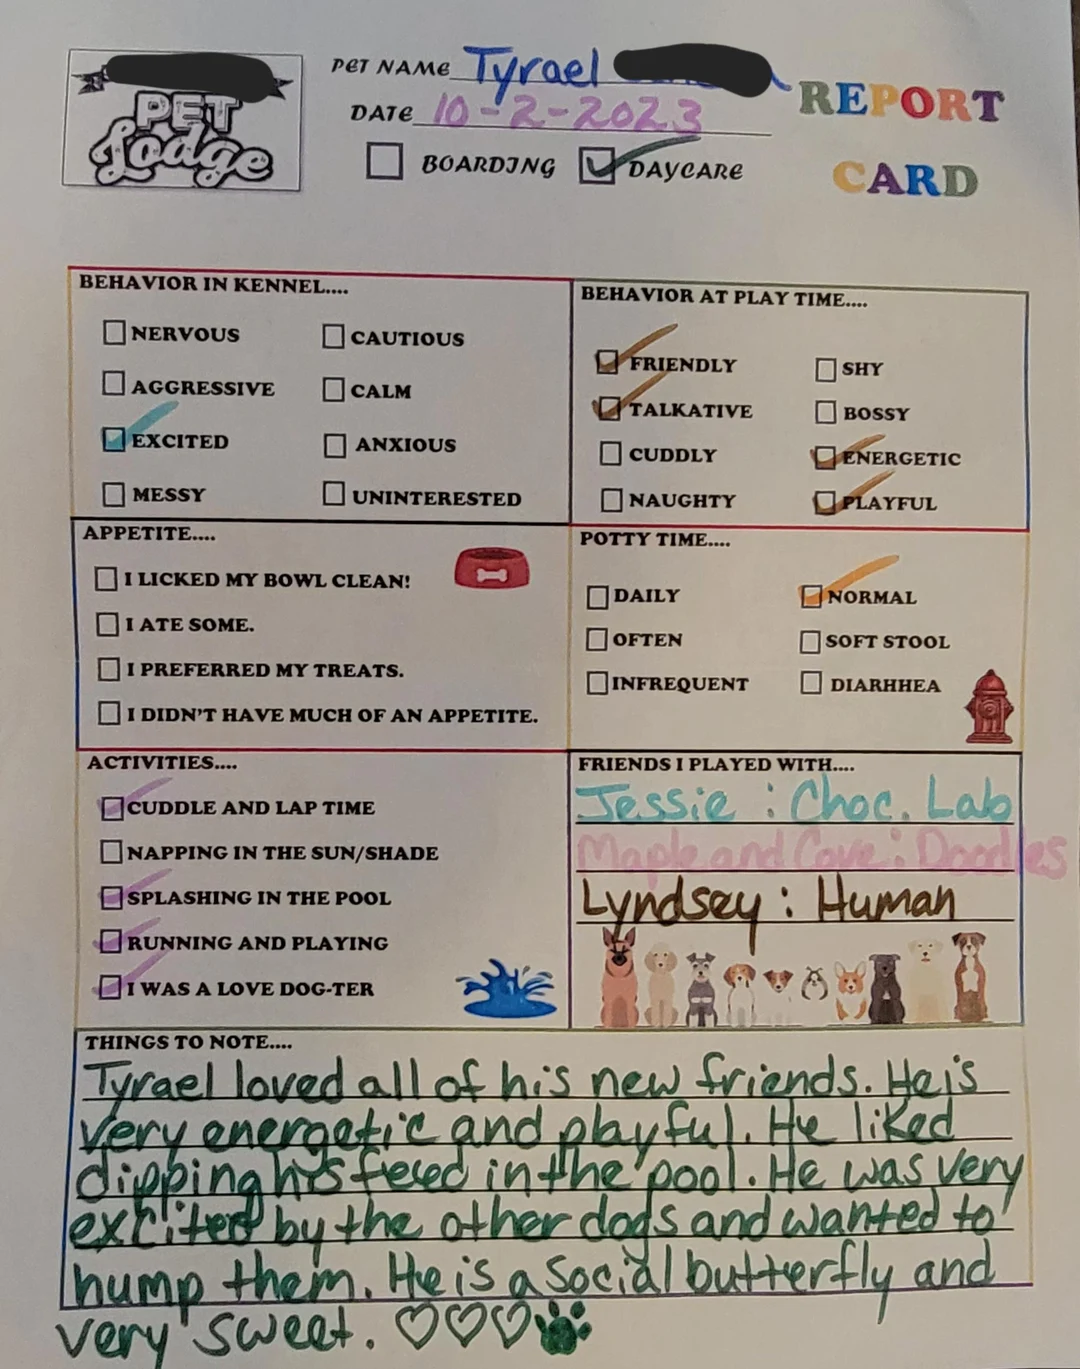 PET
Lodge
PET NAME Tyrael
DATE 10-2-2023
BOARDING DAYCARE
REPORT
CARD
BEHAVIOR IN KENNEL....
NERVOUS CAUTIOUS
AGGRESSIVE CALM
EXCITED ANXIOUS
MESSY UNINTERESTED
BEHAVIOR AT PLAY TIME....
FRIENDLY SHY
TALKATIVE BOSSY
CUDDLY ENERGETIC
NAUGHTY PLAYFUL
APPETITE....
I LICKED MY BOWL CLEAN!
I ATE SOME.
I PREFERRED MY TREATS.
I DIDN'T HAVE MUCH OF AN APPETITE.
POTTY TIME....
DAILY NORMAL
OFTEN SOFT STOOL
INFREQUENT DIARHHEA
ACTIVITIES....
CUDDLE AND LAP TIME
NAPPING IN THE SUN/SHADE
SPLASHING IN THE POOL
RUNNING AND PLAYING
I WAS A LOVE DOG-TER
FRIENDS I PLAYED WITH....
Jessie : Choc. Lab
Maple and Cove : Doodles
Lyndsey : Human
THINGS TO NOTE....
Tyrael loved all of his new friends. He is
very energetic and playful. He liked
dipping his in the pool. He was very
excited by the other dogs and wanted to
hump them. He is a social butterfly and
very sweet. ♡♡♡